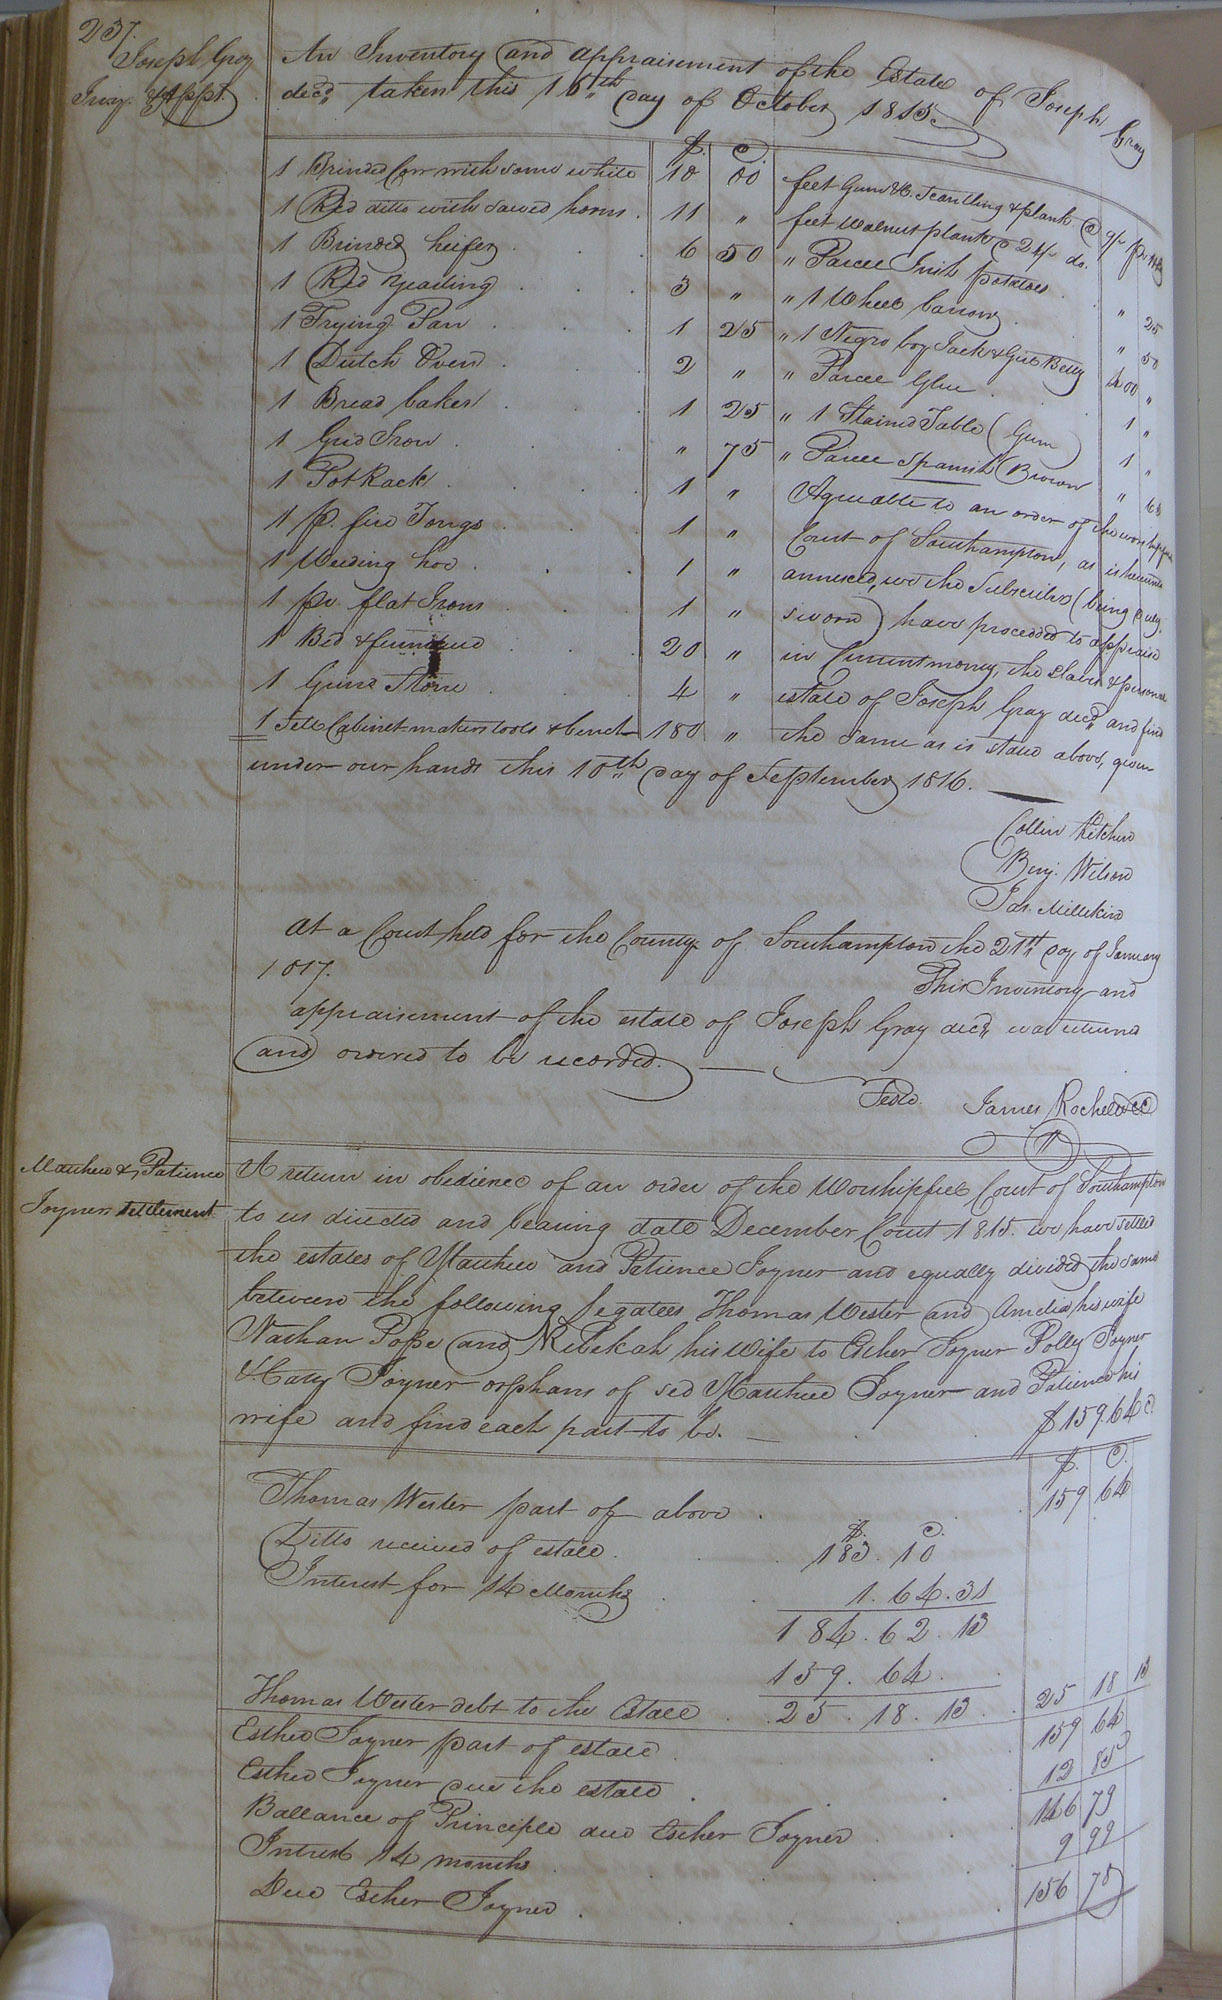 237.
Joseph Gray
Invy. & Appt.
An Inventory and appraisement of the Estate of Joseph Gray
decd, taken this 16th day of October 1815
$. C.
1 Brinded Cow with some white 10 00
1 Red ditto with sawed horns . 11 "
1 Brinded heifer . . 6 50
1 Red Yearling . . . 3 "
1 Frying Pan . . . 1 25
1 Dutch Oven . . . 2 "
1 Bread baker . . . 1 25
1 Grid Iron . . . " 75
1 Pot Rack . . . 1 "
1 p. fire Tongs . . . 1 "
1 Weeding hoe . . . 1 "
1 pr. flat Irons . . . 1 "
1 Bed & furniture . . . 20 "
1 Grind Stone . . . 4 "
1 Sett Cabinet makers tools & bench 180 "
feet Gum &c. Scantling & plank @ 9/
feet Walnut plank @ 24/ do.
" Parcel Irish potatoes . " 25
" 1 Wheel barrow . " 50
" 1 Negro boy Jack & Girl Betty 400 "
" Parcel Glue . . 1 "
" 1 Stained Table (Gum) 1 "
" Parcel Spanish Brown "
Agreeable to an order of the worshipful
Court of Southampton, as is hereunto
annexed, we the Subscribers (being duly
sworn) have proceeded to appraise
in Current money, the slaves & personal
estate of Joseph Gray decd, and find
the same as is stated above, given
under our hands this 10th day of September 1816.
Collin Kitchen
Benj. Wilson
Jas. Millikin
At a Court held for the County of Southampton the 21st day of January
1817. This Inventory and
appraisement of the estate of Joseph Gray decd, was returned
and ordered to be recorded.
Teste. James Rochelle CC
Matthew & Patience
Joyners settlement
A return in obedience of an order of the Worshipfull Court of Southampton
to us directed and bearing date December Court 1815. we have settled
the estates of Matthew and Patience Joyner and equally divided the same
between the following legatees Thomas Wester and Amelia his wife
Nathan Pope and Rebekah his Wife to Esther Joyner Polly Joyner
& Cary Joyner orphans of sed Matthew Joyner and Patience his
wife and find each part to be. $159.64 c.
$. C.
Thomas Wester part of above . . 159 64
$. C.
Ditto received of estate . . 183. 10
Interest for 14 Months . . 1. 64. 31
184. 62. 13
159. 64.
Thomas Wester debt to the Estate . . 25. 18. 13. . 25 18 13
Esther Joyner part of estate . . 159 64
Esther Joyner due the estate . . 12 85
Ballance of Principle due Esther Joyner . . 146 79
Intrest 14 months . . 9 99
Due Esther Joyner . . . 156 78